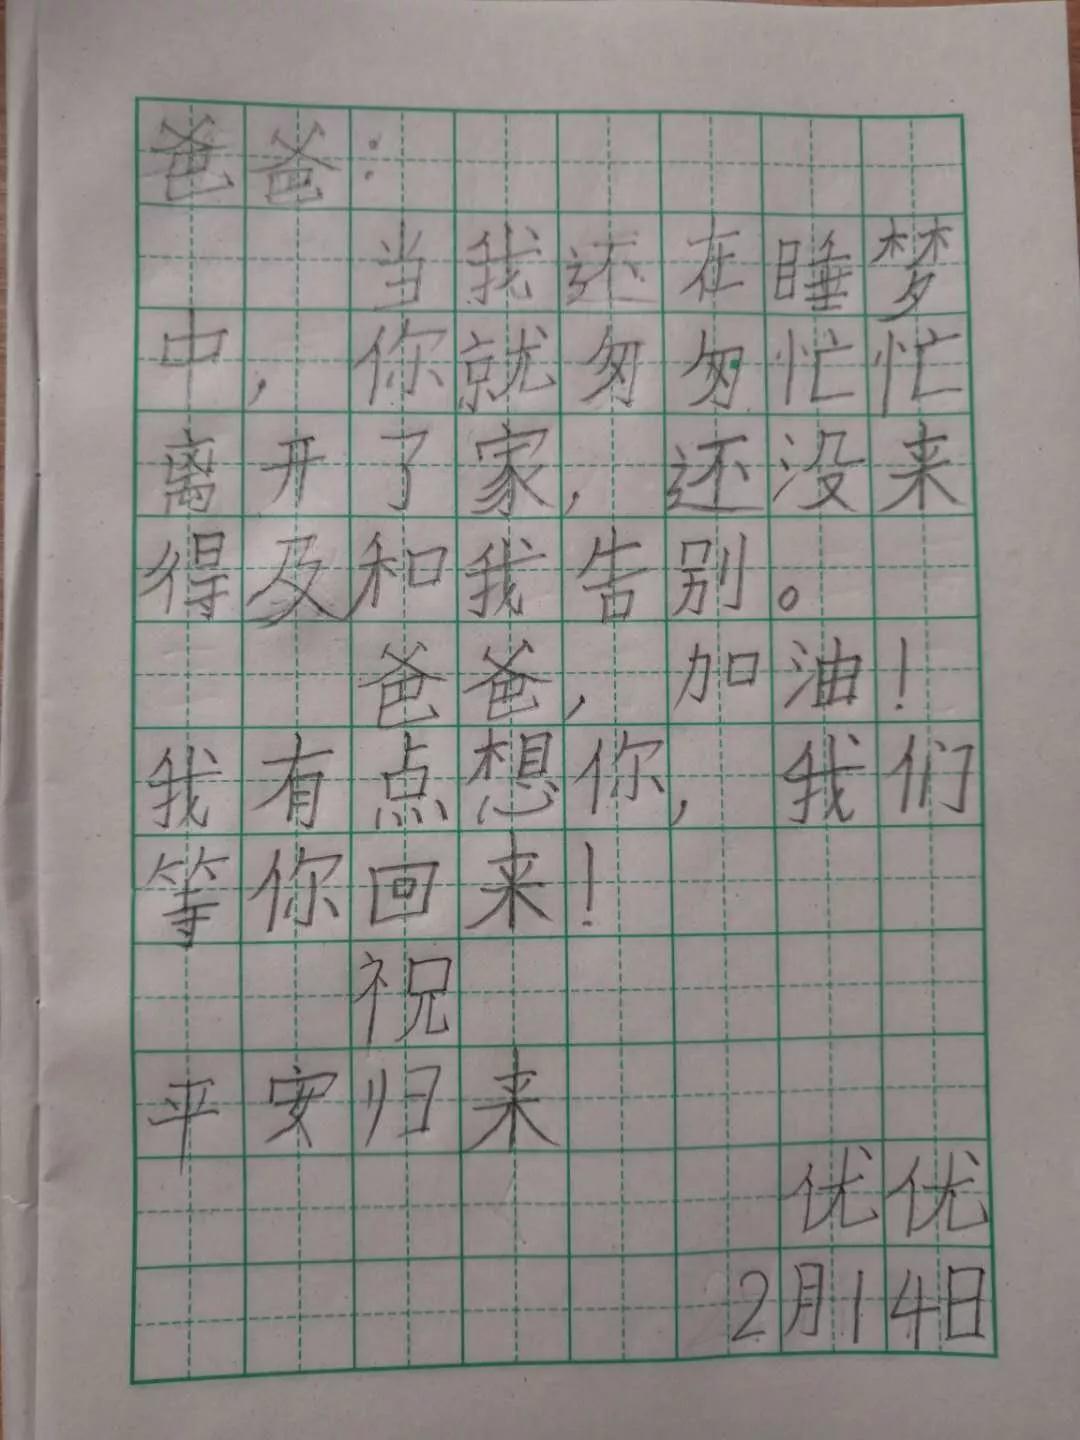 爸爸：
当我还在睡梦
中，你就匆匆忙忙
离开了家，还没来
得及和我告别。
爸爸，加油！
我有点想你，我们
等你回来！
祝
平安归来
优优
2月14日